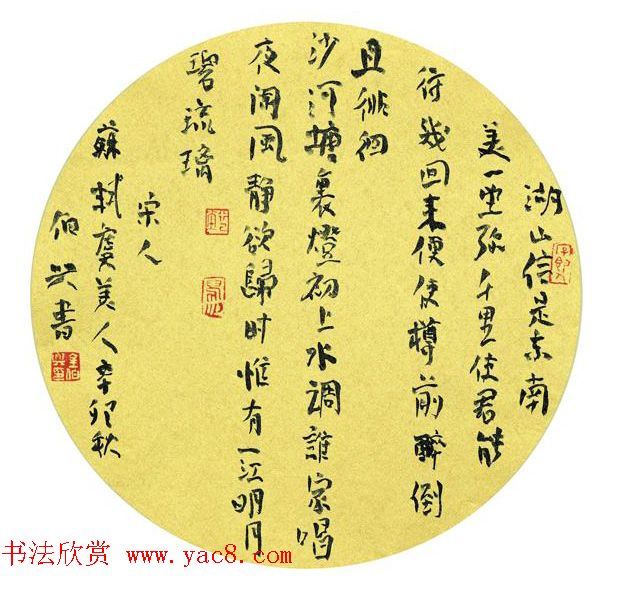 湖山信是东南
美一望弥千里使君能
得幾回来便使樽前醉倒
且徘徊
沙河塘裏燈初上水調誰家唱
夜阑風静欲歸时惟有一江明月
碧琉璃
宋人
蘇軾虞美人辛卯秋
伯兴書
书法欣赏 www.yac8.com